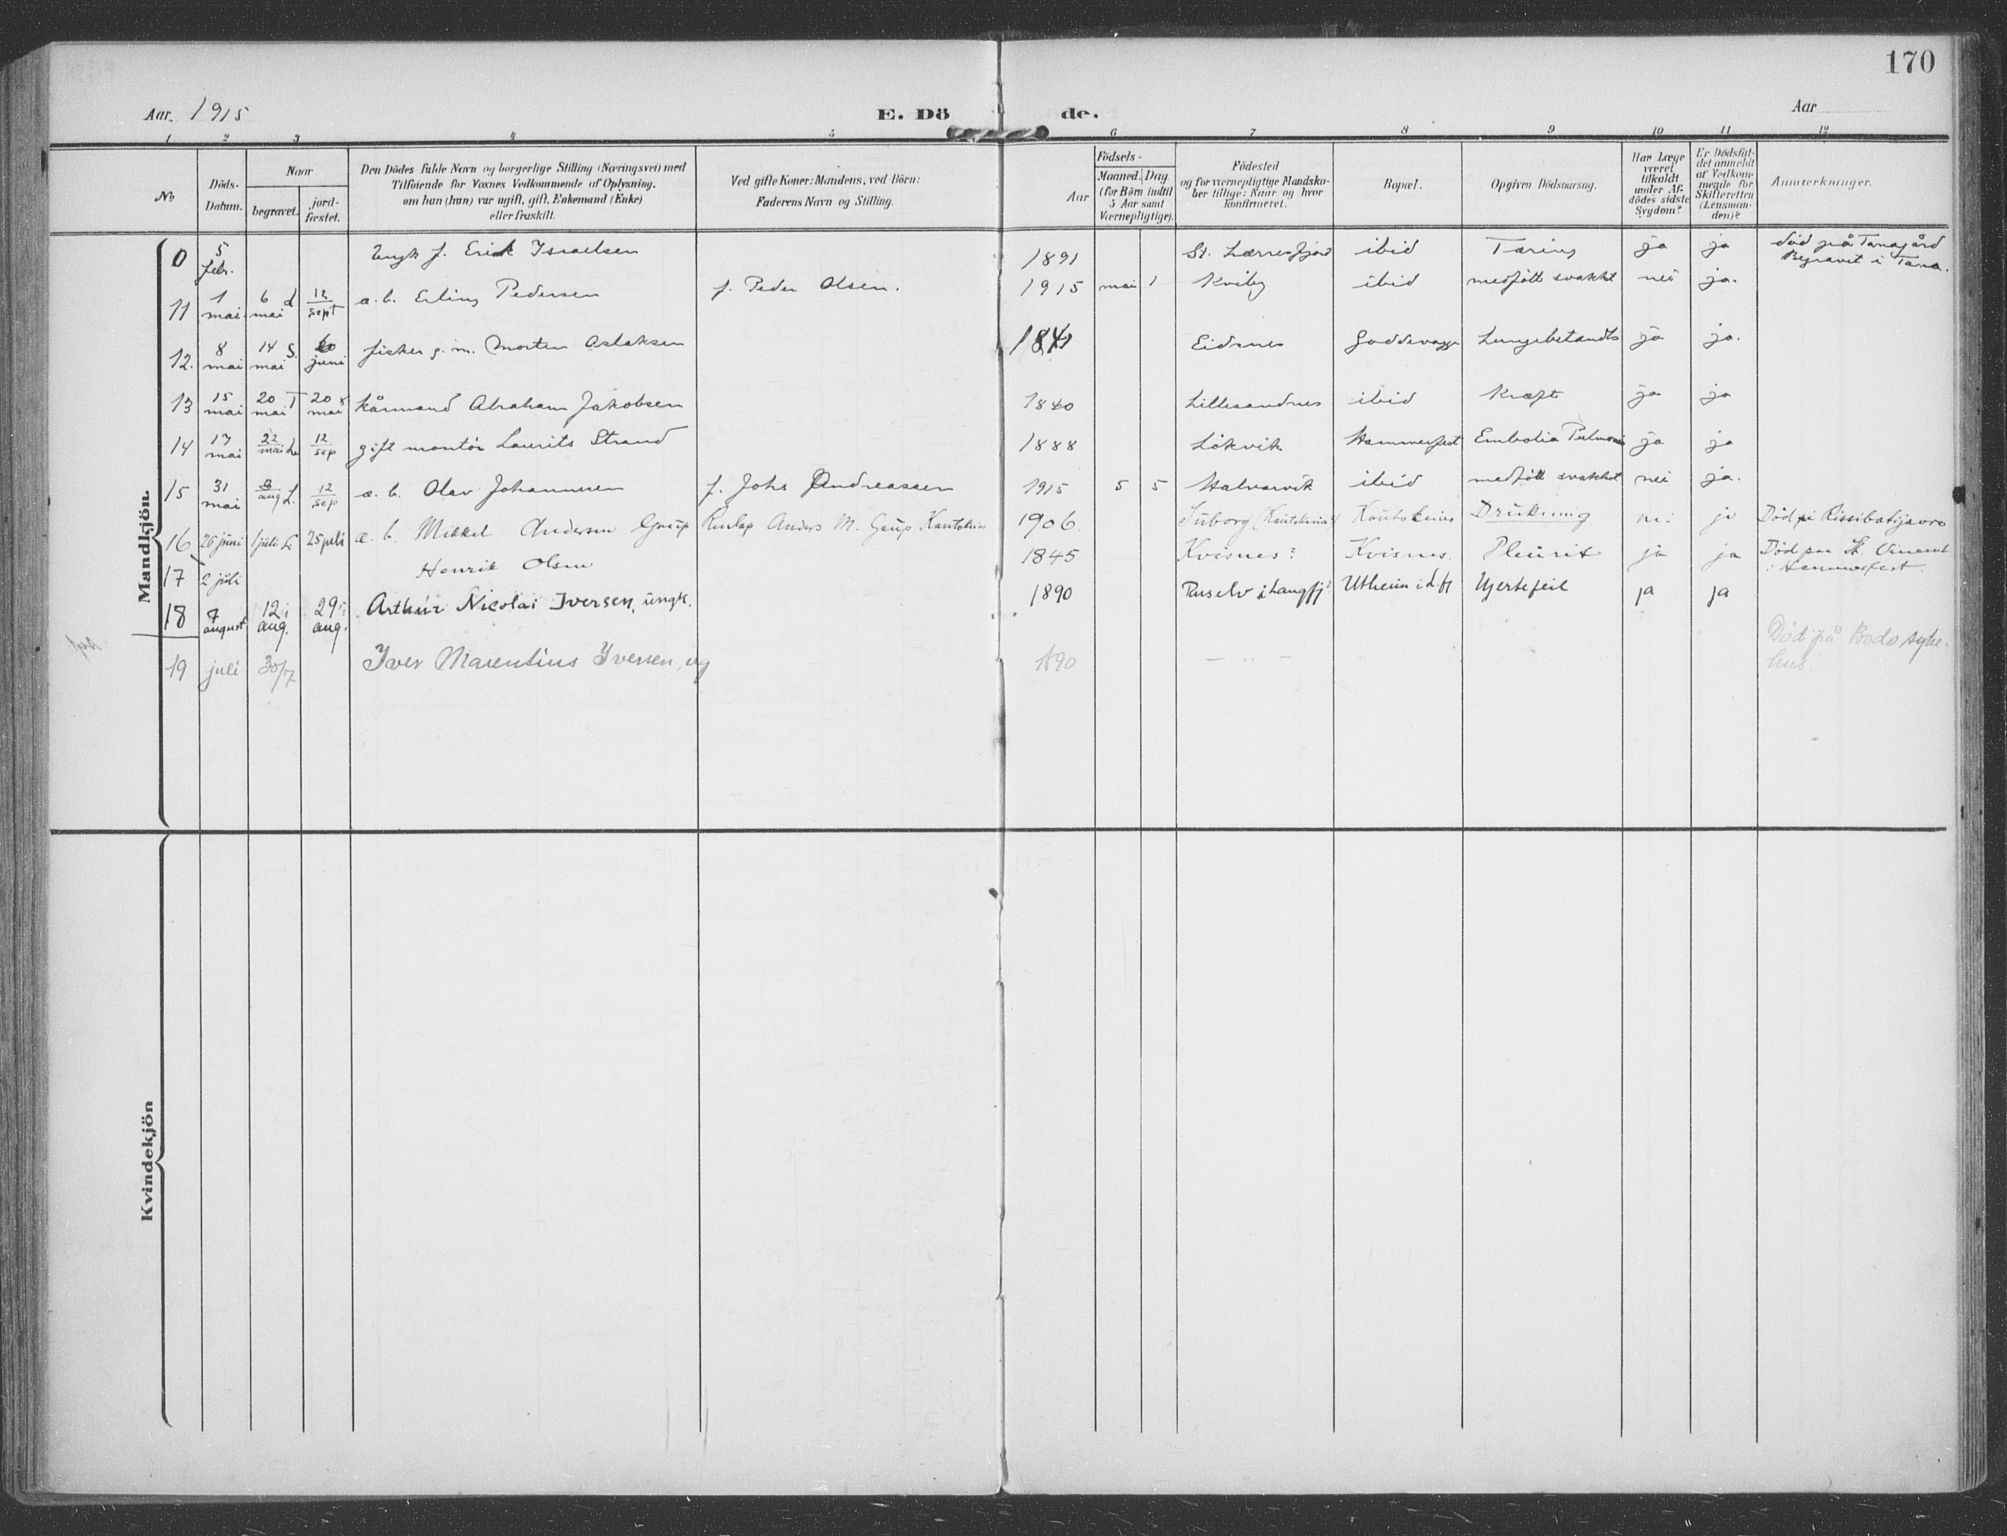 170
Aar. 1915 E. Dö de. Aar
1 2 3 4 5 6 7 8 9 10 11 12
No. Döds-Datum. Naar begravet. jord-fæstet. Den Dödes fulde Navn og borgerlige Stilling (Næringsvei) med Tilføiende for Voxnes Vedkommende af Oplysning, om han (hun) var ugift, gift, Enkemand (Enke) eller fraskilt. Ved gifte Koner: Mandens, ved Börn: Faderens Navn og Stilling. Födsels- Aar Maaned. Dag. (for Börn indtil 5 Aar samt Værnepligtige). Födested og for værnepligtige Mandskaber tillige: Naar og hvor konfirmeret. Bopæl. Opgiven Dödsaarsag. Har Læge været tilkaldt under Afdödes sidste Sygdom? Er Dödsfaldet anmeldt af Vedkommende for Skifteretten (Lensmanden)? Anmærkninger.
Mandkjön.
0 5 febr. Ungk f. Erik Israelsen 1891 St. Lærresfjord ibid Tæring ja ja død på Tanagård Begravet i Tana.
11 1 mai 6 mai L 12 sept a. b. Erling Pedersen f. Peder Olsen. 1915 mai 1 Kviby ibid medfött svakhet nei ja.
12. 8 mai 14 mai S. juni fisker g. m. Morten Aslaksen Eidsnes ja ja.
13 15 mai 20 mai T 20 mai kårmand Abraham Jakobsen 1840 Lillesandnes ibid Kræft ja ja
14 17 mai 22 mai L. 12 sep gift montör Laurits Strand 1888 Lökvik Hammerfest Embolia Pulmonis ja ja
15 31 mai 8 aug L. 12 sep a. b. Olav Johannesen f. Johs Andreassen 1915 5 5 Halvarvik ibid medfött svakhet nei ja.
16 26 juni 1 juli L. 25 juli a. b. Mikkel Andersen Gaup Anders M. Gaup Kautokeino 1906 Kautokeino Drukning nei ja
17 2 juli Henrik Olsen 1845 Kvisnes? Kvisnes. Pleurit ja ja Død paa St. Vincent i Hammerfest.
18 7 august 12 aug. 29 aug. Arthur Nicolai Iversen, ungk. 1890 Utheim i Lgfj Hjertefeil ja ja
19 juli 30/7 Iver Marentius Iversen, ug 1890 – „ – Død på Bodø sykehus.
Kvindekjön